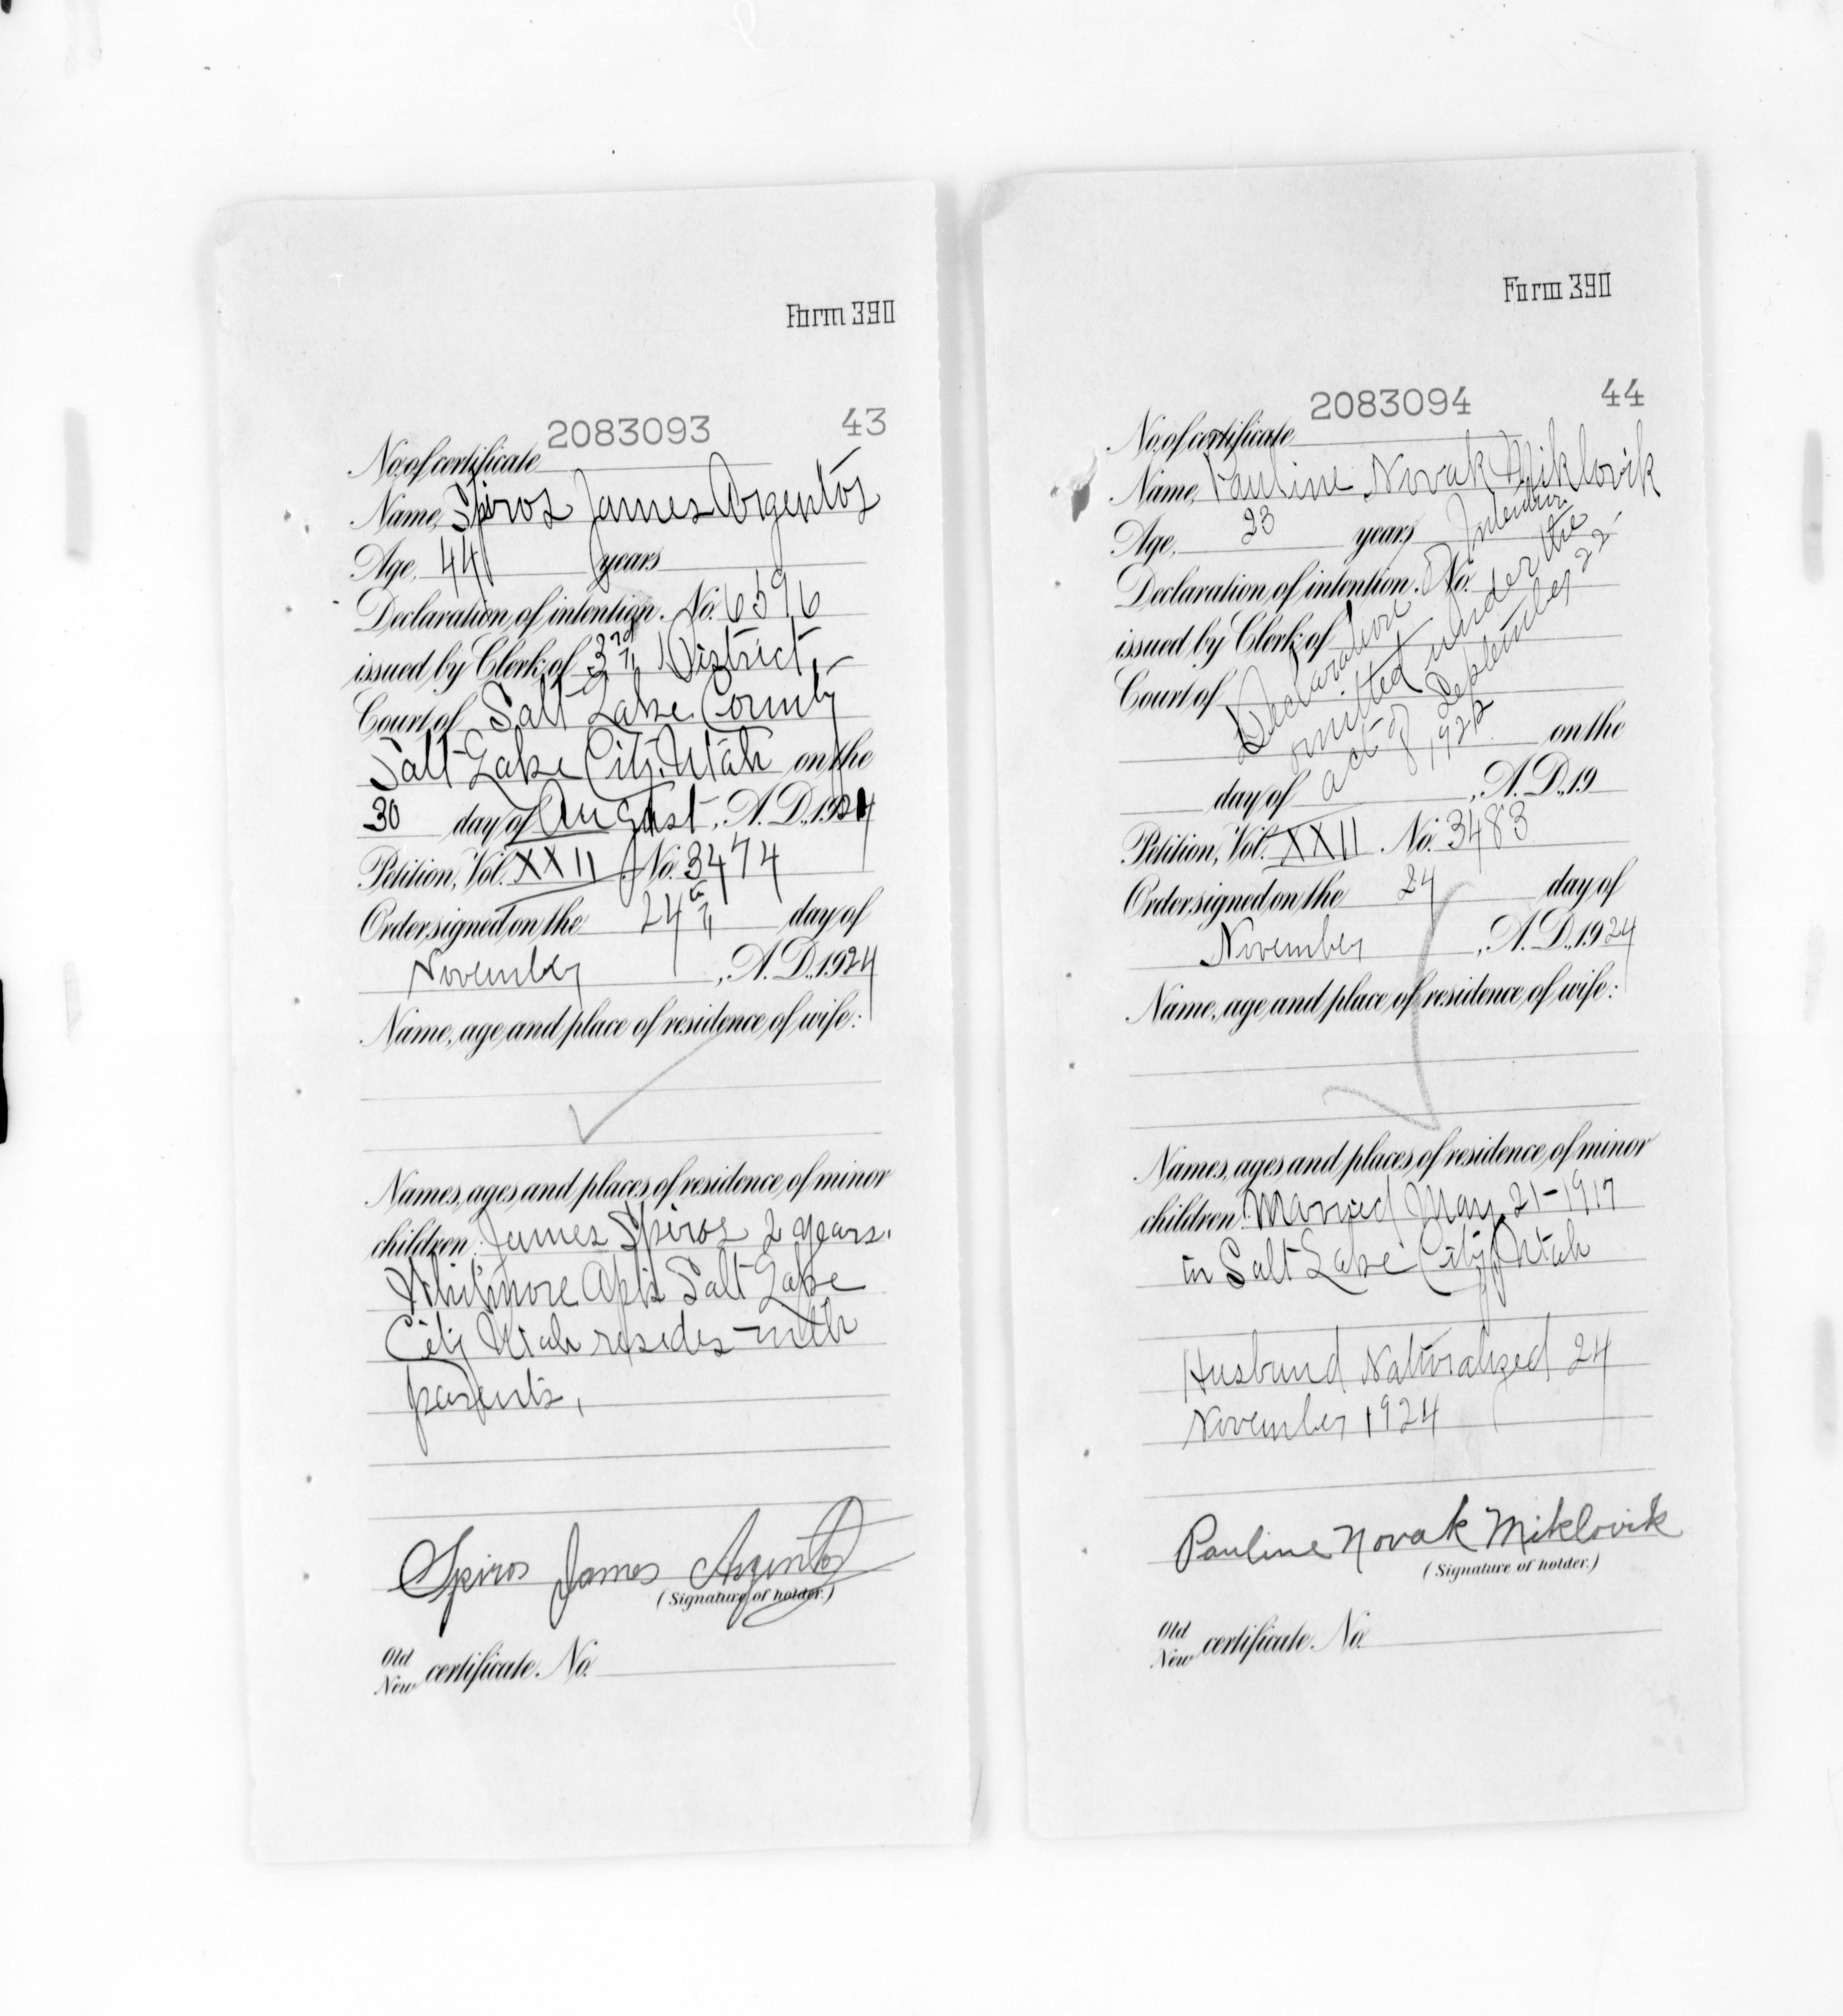 Form 390
2083093 43
No. of certificate
Name, Spiros James Argentos
Age, 44 years
Declaration of intention. No. 6596
issued by Clerk of 3rd District,
Court of Salt Lake County
Salt Lake City, Utah on the
30 day of August, A. D., 1921
Petition, Vol. XXII No. 3474
Order signed on the 24th day of
November, A. D., 1924
Name, age and place of residence of wife:
Names, ages and places of residence of minor
children: James Spiros 2 years.
Whitmore Apts Salt Lake
City Utah resides with
parents,
Spiros James Argentos
(Signature of holder.)
Old
New certificate. No.
Form 390
2083094 44
No. of certificate
Name, Pauline Novak Miklovik
Age, 23 years
Declaration of intention. No.
issued by Clerk of
Court of
Declaration of Intention
omitted under the
act of September 22
1922
on the
day of , A. D., 19
Petition, Vol. XXII No. 3483
Order signed on the 24 day of
November, A. D., 1924
Name, age and place of residence of wife:
Names, ages and places of residence of minor
children: Married May 21-1917
in Salt Lake City, Utah
Husband Naturalized 24
November 1924
Pauline Novak Miklovik
(Signature of holder.)
Old
New certificate. No.